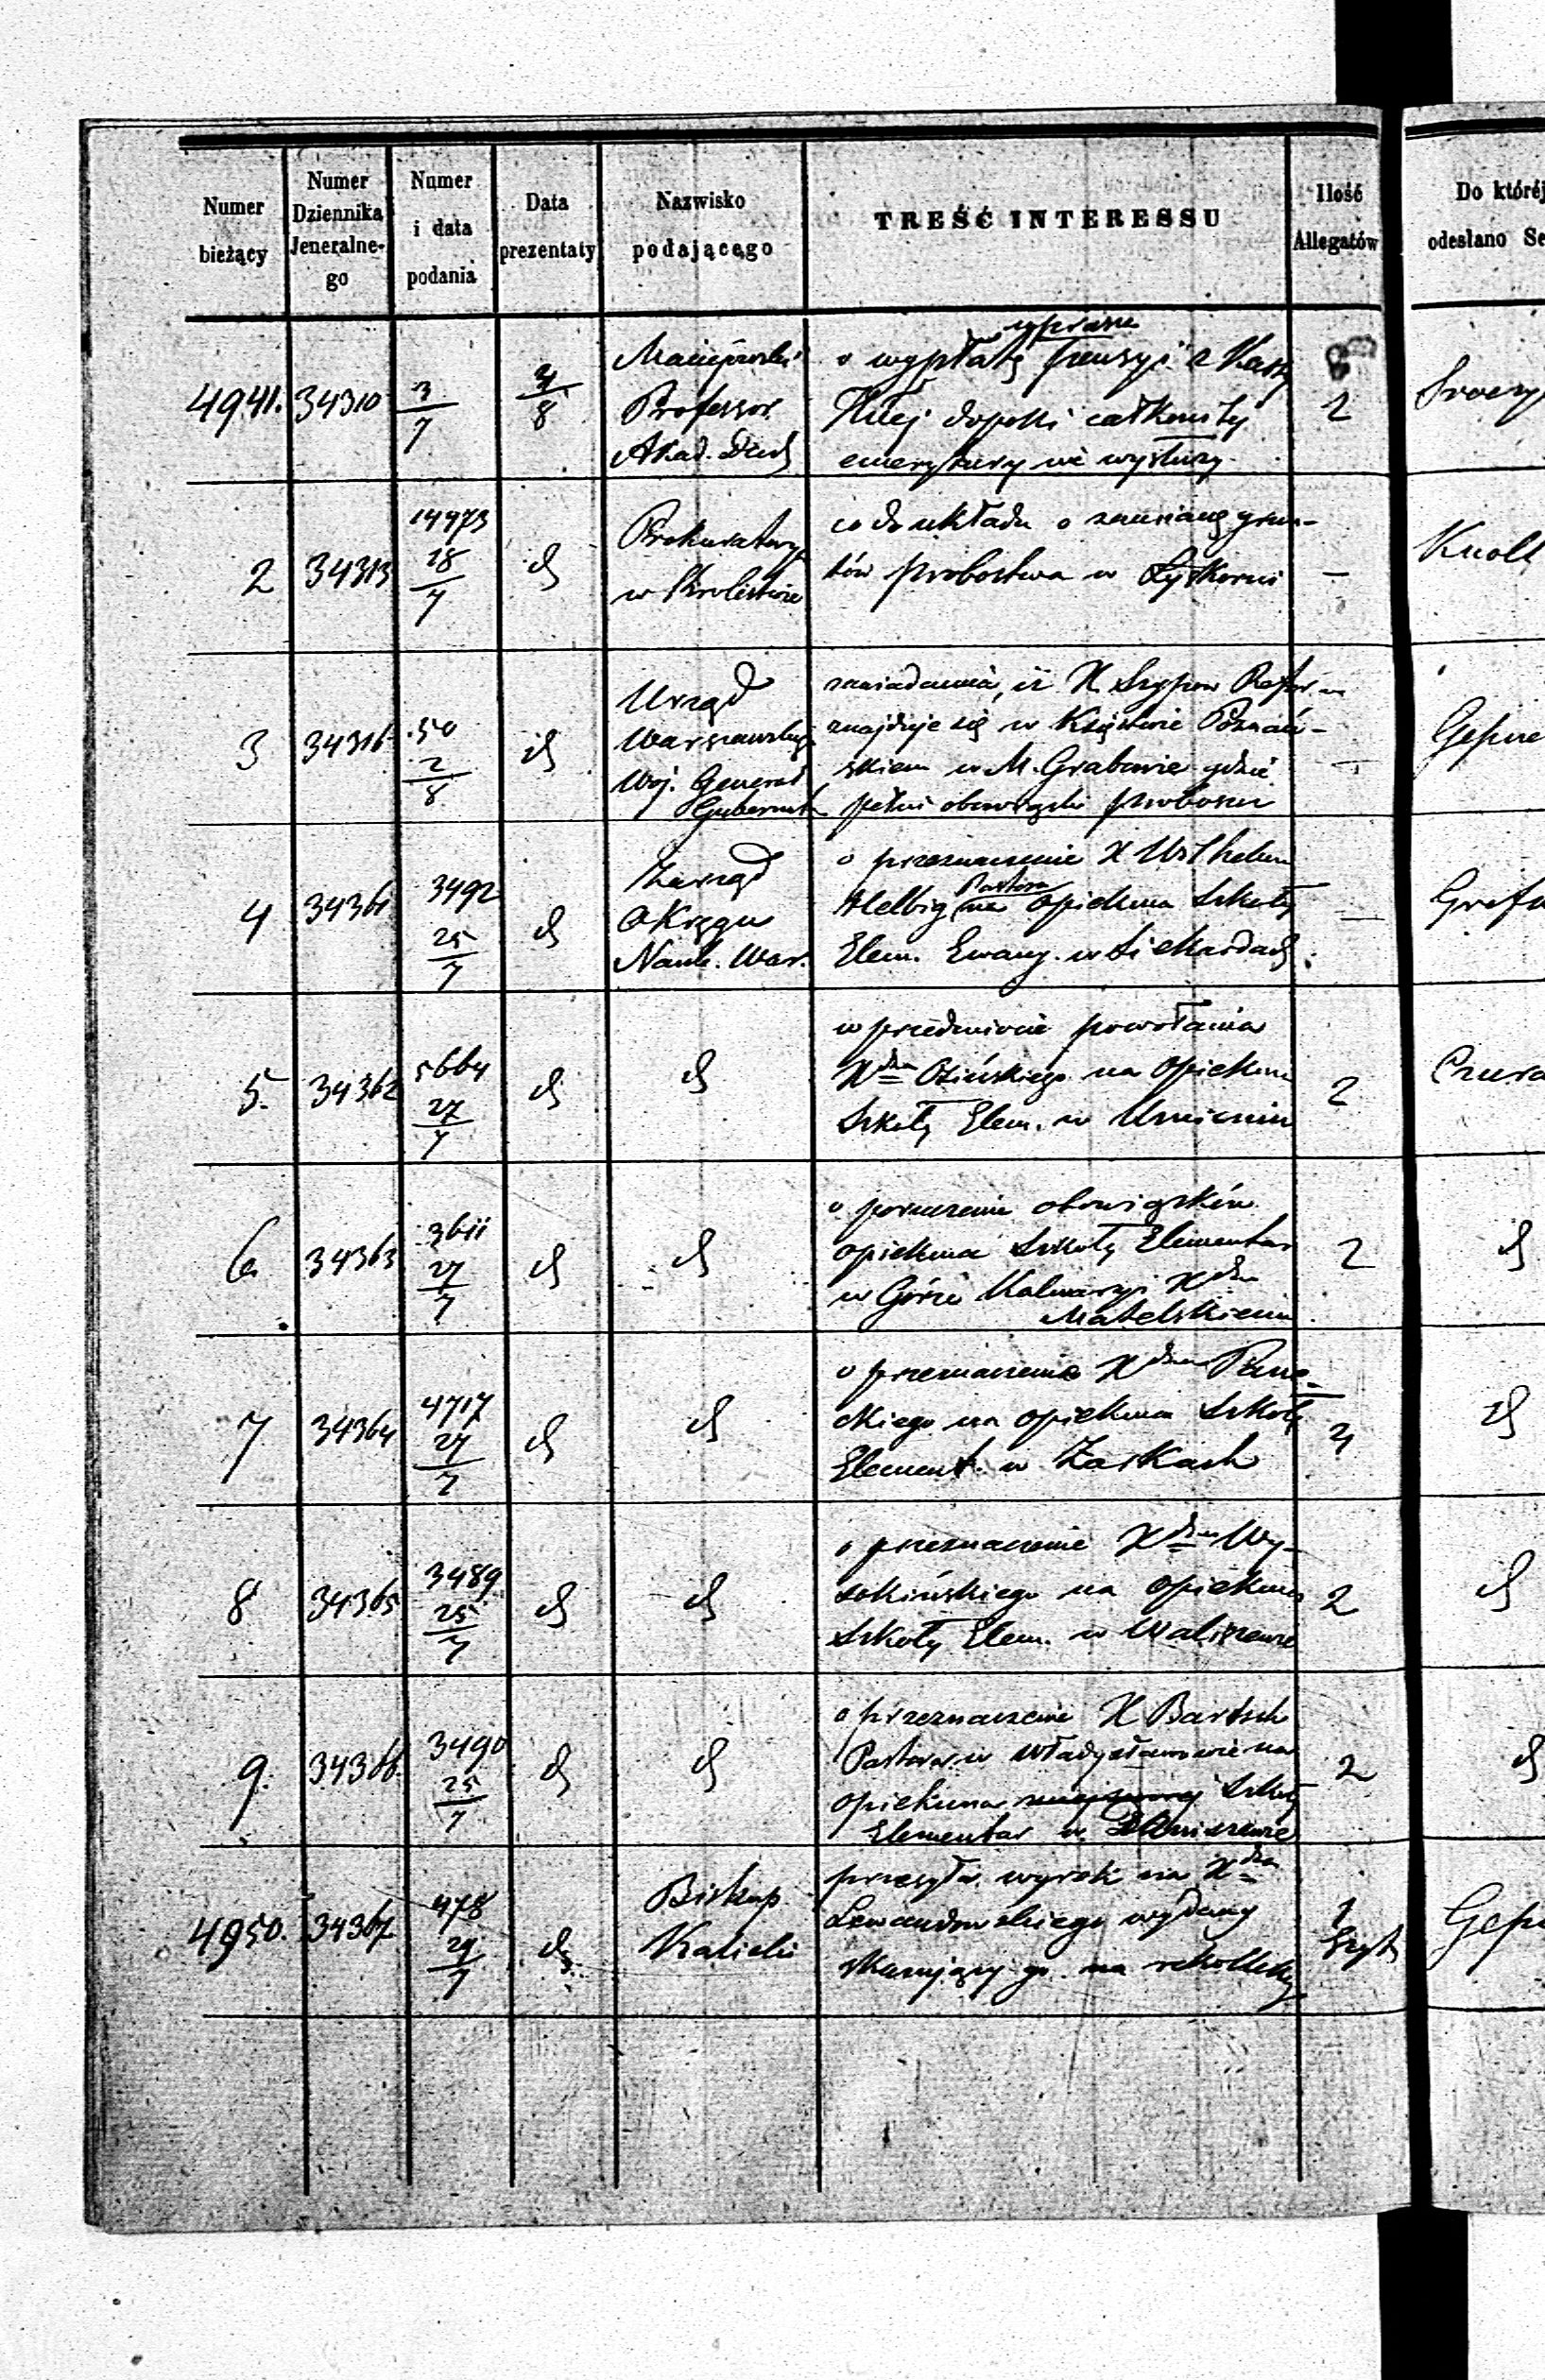 Numer bieżący
Numer Dziennika Jeneralnego
Numer i data podania
Data prezentaty
Nazwisko podającego
TREŚĆ INTERESSU
Ilość Allegatów
Do któréj
odesłano Se
4941. 34310 3/7 4/8
Professor
Akad. Duch
o wypłatę pensyi z Kassy
całkowitej
emerytury nie wysłuży
2
2 34313 14473 18/7 d
Prokuratorya
w Królestwie
co do układu o zamianę grun-
tów probostwa w Łyskorni
—
Knoll
3 34316 50 2/8 d
Urząd
Warszawskiego
Woj. Generał
Gubernat
zawiadamia, iż X. Refor
znajduje się w Księstwie Poznań-
skiem w M. Grabowie gdzie
pełni obowiązki proboszcza
—
4 34361 3492 25/7 d
Zarząd
Okręgu
Nauk. War.
o przeznaczenie X Wilhelm
Pastora
Helbig na opiekuna Szkoły
Elem. Ewang. w
—
5. 34362 5664 27/7 d
d
w przedmiocie powołania
Xdza Osińskiego na opiekuna
Szkoły Elem. w
2
6 34363 3611 27/7 d
d
o poruczenie obowiązków
opiekuna Szkoły Elementar
w Górze Kalwaryi Xdzu
Matelskiemu
2
d
7 34364 4717 27/7 d
d
o przeznaczenie Xdza
ckiego na opiekuna Szkoły
Element. w Żarkach
d
8 34365 3489 25/7 d
d
o przeznaczenie Xdza Wy-
sokińskiego na opiekuna
Szkoły Elem. w Waliszewie
2
d
9. 34366 3490 25/7 d
d
o przeznaczenie X Bartsch
Pastora w Władysławowie na
opiekuna Szkoły
Elementar w
2
d
4950. 34367 478 29/7 d
Biskup
Kaliski
przesyła wyrok na Xdza
Lewandowskiego wydany
skazujący go na rekollekcye
1